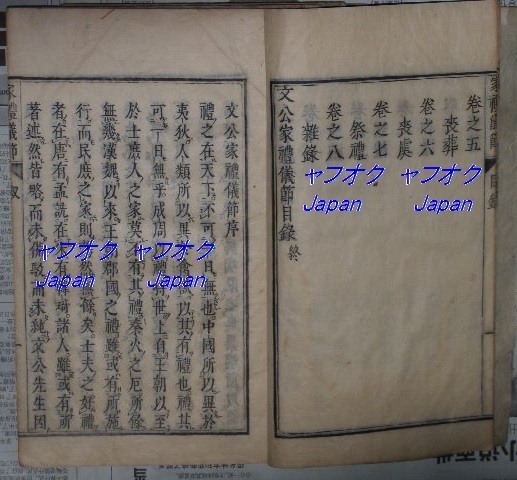 家禮儀節 目錄
卷之五
喪葬
卷之六
喪虞
卷之七
祭禮
卷之八
雜錄
文公家禮儀節目錄 終
文公家禮儀節序
禮之在天下不可一日無也中國所以異於
夷狄人類所以異於禽獸以其有禮也禮其
可一日無乎成周以禮持世上自王朝以至
於士庶人之家莫不有其禮秦火之厄所餘
無幾漢魏以來王朝郡國之禮雖或有所施
行而民庶之家則蕩然無餘矣士夫之好禮
者在唐有孟詵在宋有韓琦諸人雖或有所
著述然皆略而未備駁而未純文公先生因
家禮儀節
ヤフオク
Japan
ヤフオク
Japan
ヤフオク
Japan
ヤフオク
Japan